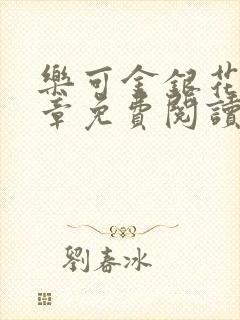 樂可金銀花
章免費閱讀
劉春冰